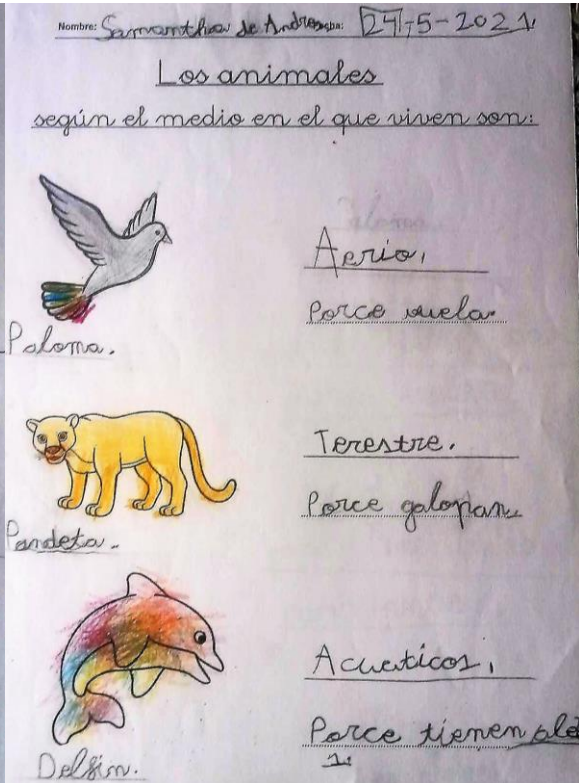 Nombre: Samantha de Andres cha: 24-5-2021.
Los animales
según el medio en el que viven son:
Aerio,
Porce vuela.
Paloma.
Terestre.
Porce galopan.
Pandeta.
Acuaticos,
Porce tienen ale
1.
Delfin.